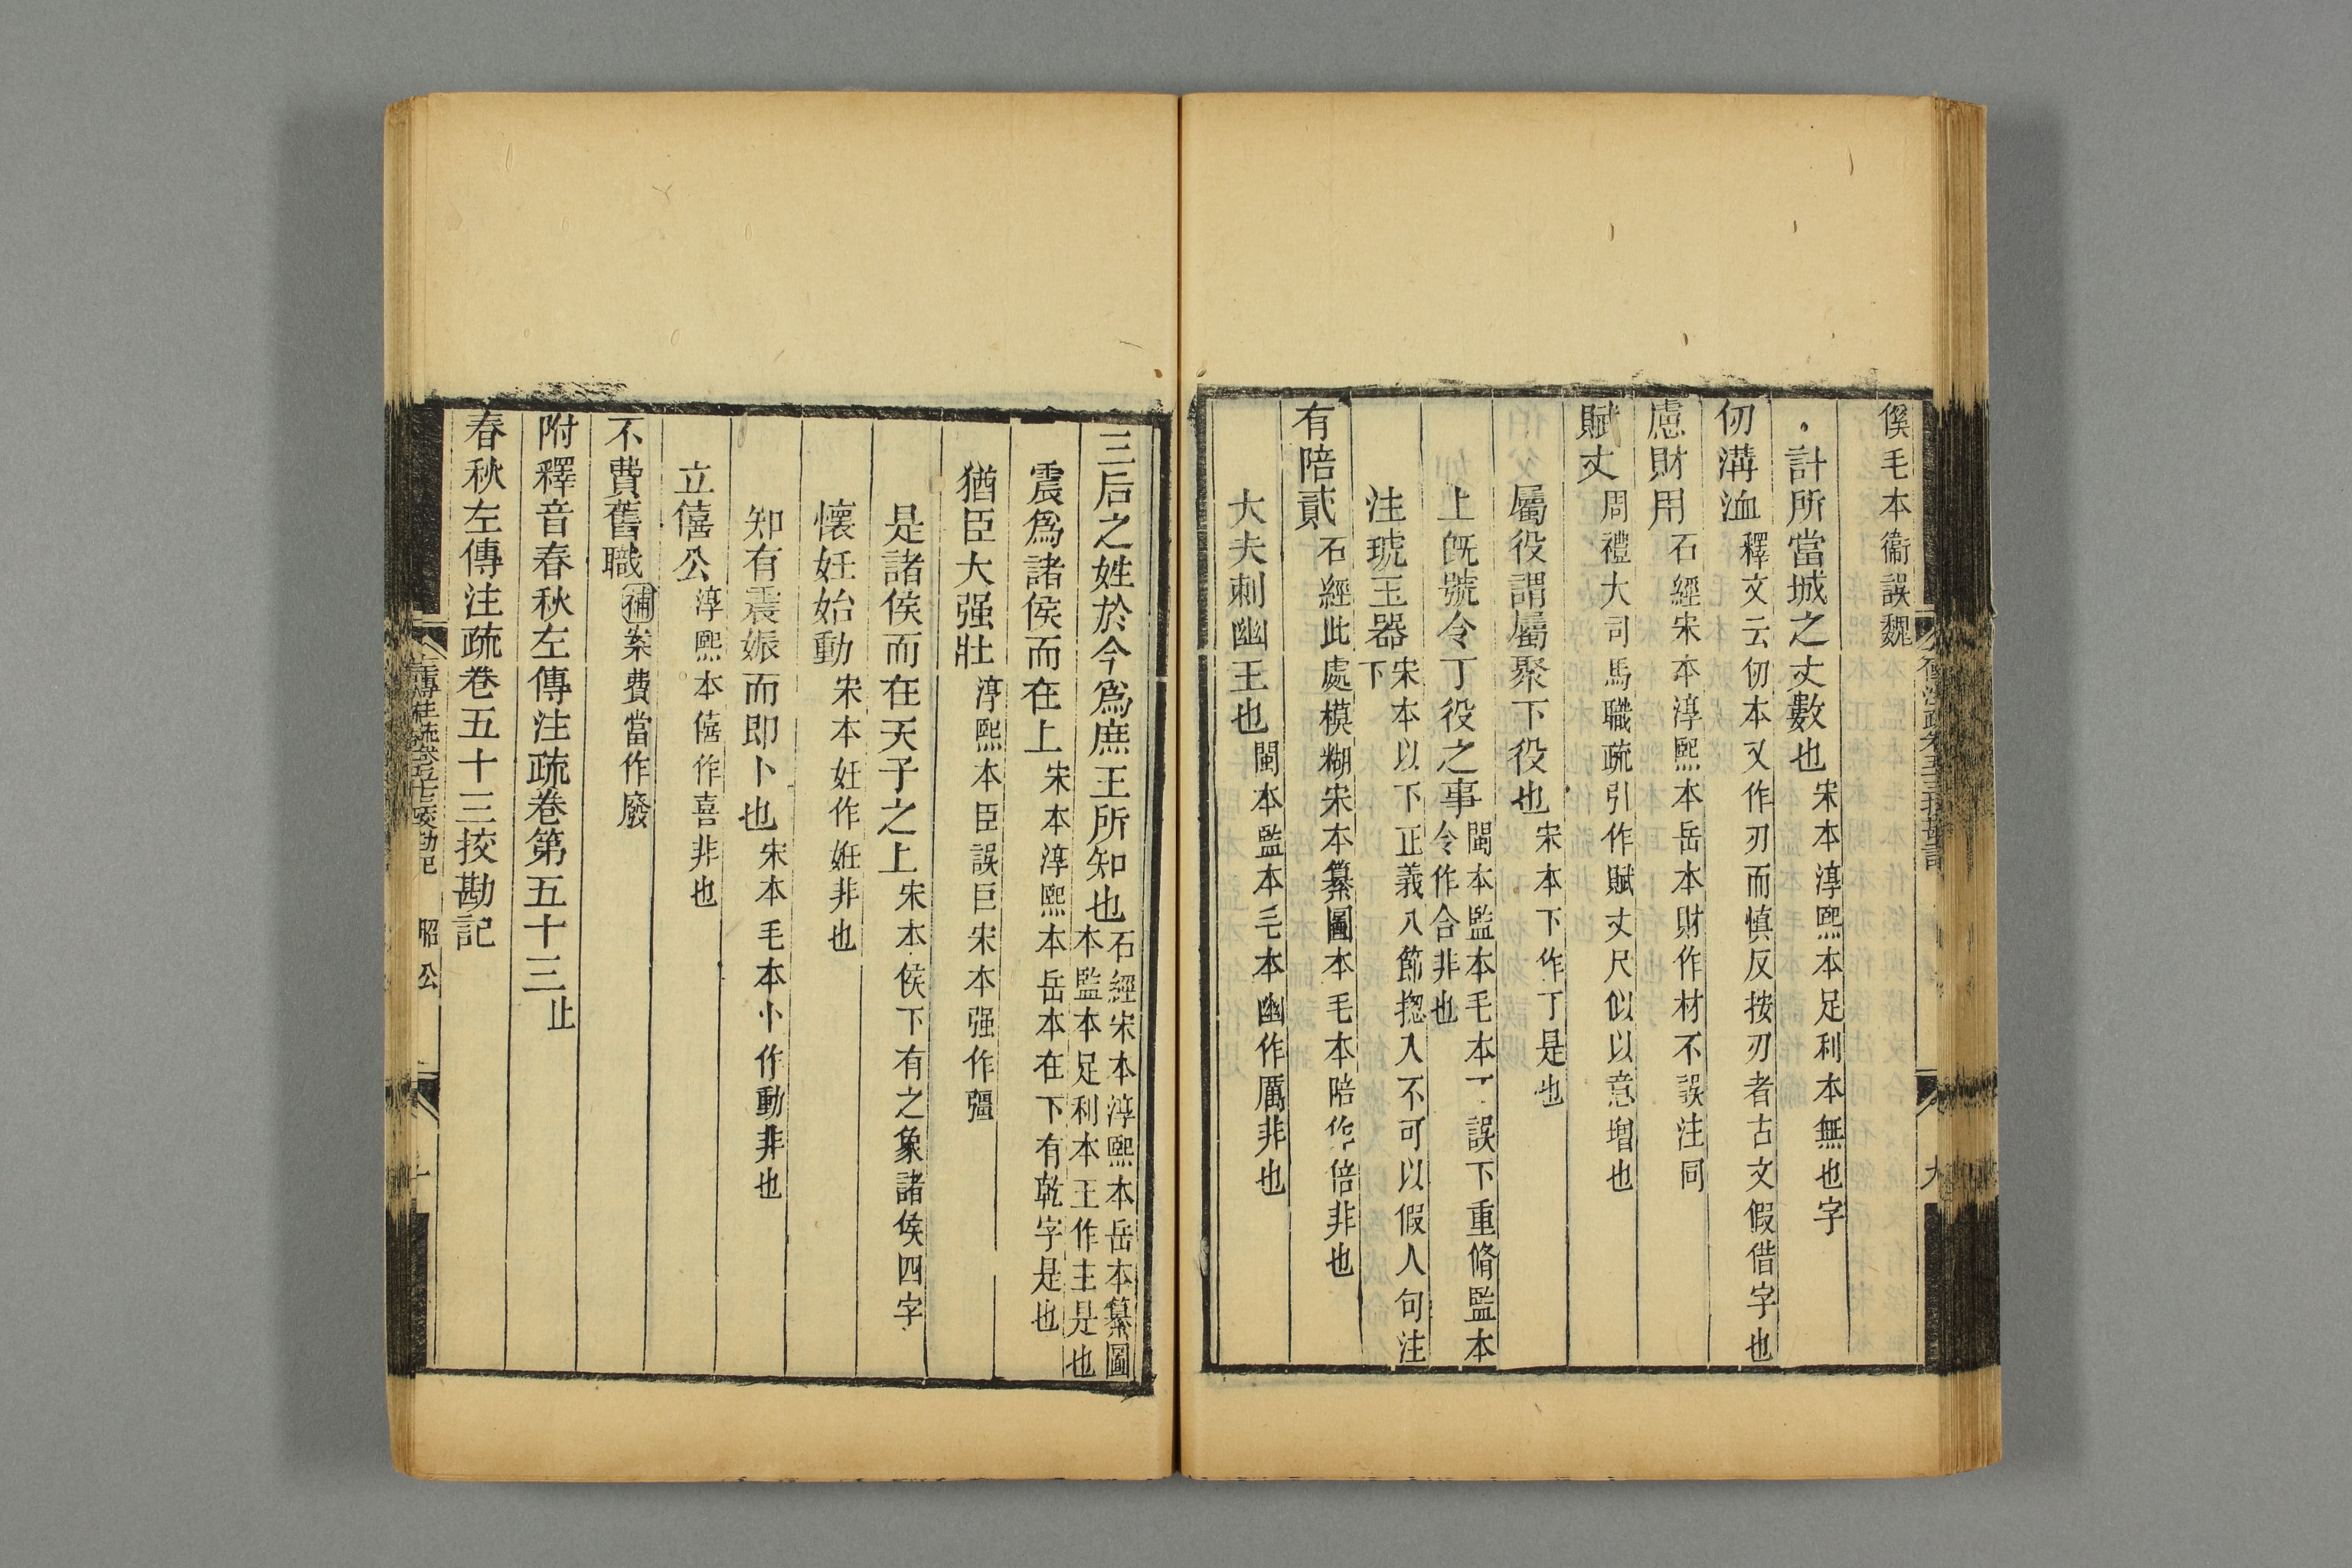 傒毛本衞誤魏
計所當城之丈數也宋本淳熙本足利本無也字
仞溝洫釋文云仞本又作刃而慎反按刃者古文假借字也
慮財用石經宋本淳熙本岳本財作材不誤注同
賦丈周禮大司馬職疏引作賦丈尺似以意增也
屬役謂屬聚下役也宋本下作丁是也
上旣號令丁役之事閩本監本毛本丁誤下重脩監本
令作合非也
注琥玉器宋本以下正義八節揔入不可以假人句注
下
有陪貳石經此處模糊宋本纂圖本毛本陪作倍非也
大夫刺幽王也閩本監本毛本幽作厲非也
三后之姓於今爲庶王所知也石經宋本淳熙本岳本纂圖
本監本足利本王作主是也
震爲諸侯而在上宋本淳熙本岳本在下有乾字是也
猶臣大强壯淳熙本臣誤巨宋本强作彊
是諸侯而在天子之上宋本侯下有之象諸侯四字
懷妊始動宋本妊作姙非也
知有震娠而即卜也宋本毛本卜作動非也
立僖公淳熙本僖作喜非也
不費舊職補案費當作廢
附釋音春秋左傳注疏卷第五十三止
春秋左傳注疏卷五十三挍勘記
昭公